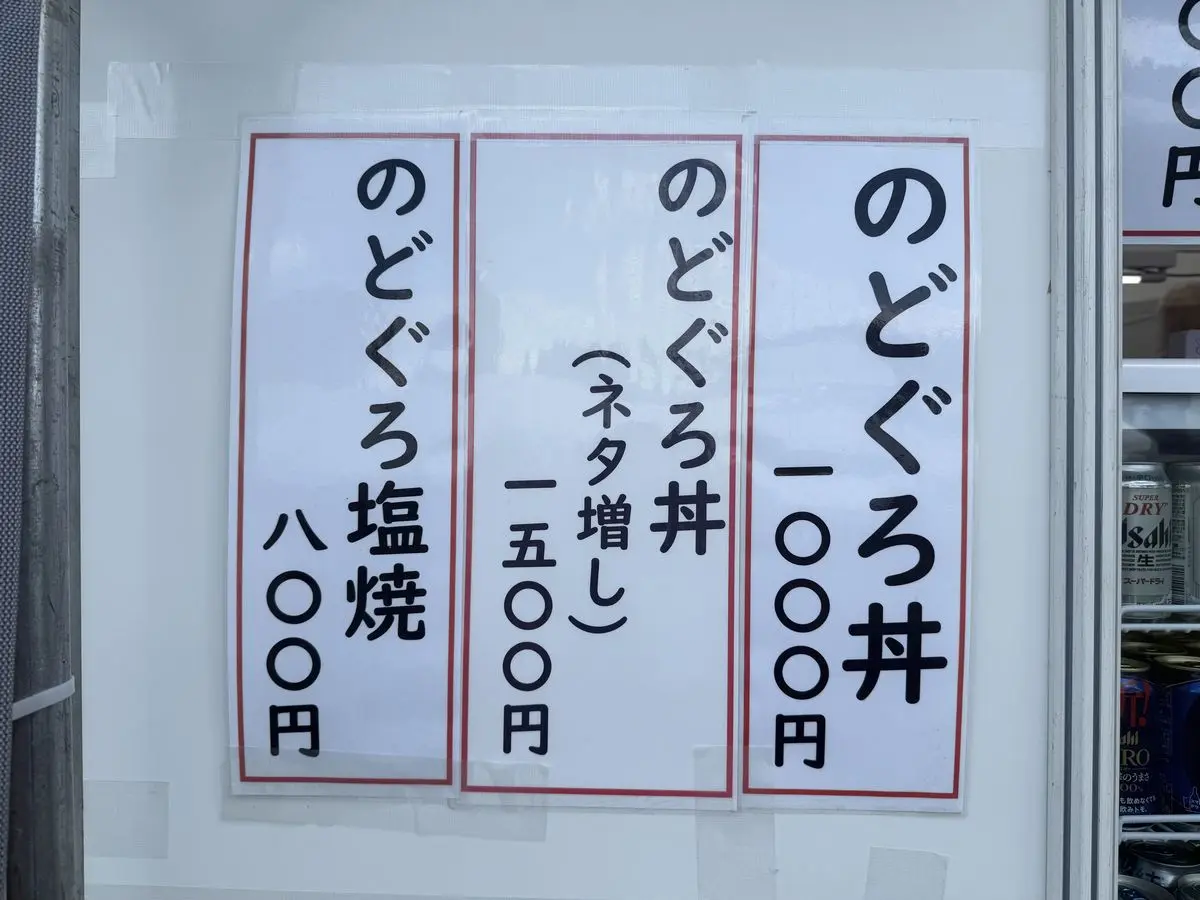 のどぐろ丼
一〇〇〇円
のどぐろ丼
（ネタ増し）
一五〇〇円
のどぐろ塩焼
八〇〇円
〇〇円
SUPER
DRY
Asahi
生
スーパードライ